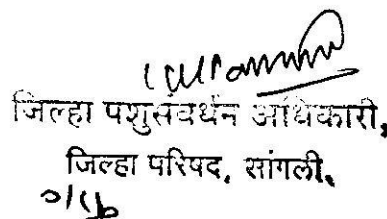 जिल्हा पशुसंवर्धन अधिकारी,
जिल्हा परिषद, सांगली.